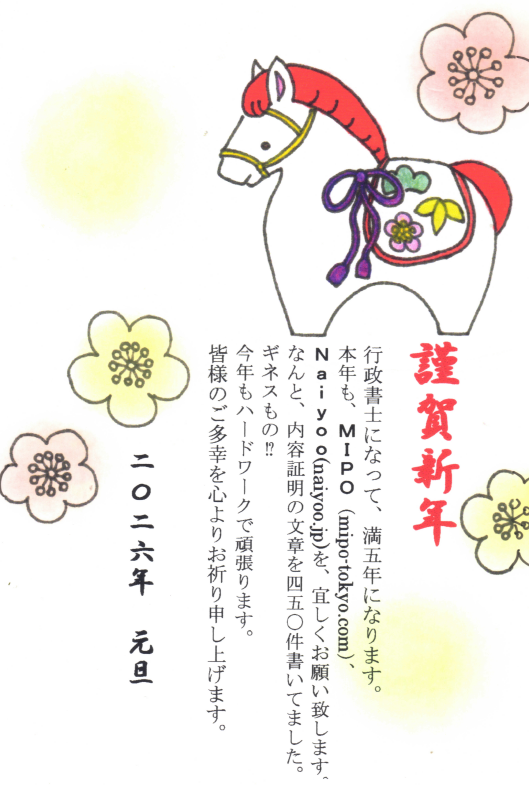 謹賀新年
行政書士になって、満五年になります。
本年も、ＭＩＰＯ（mipo-tokyo.com）、
Ｎａｉｙｏｏ(naiyoo.jp)を、宜しくお願い致します。
なんと、内容証明の文章を四五〇件書いてました。
ギネスもの!?
今年もハードワークで頑張ります。
皆様のご多幸を心よりお祈り申し上げます。
二〇二六年　元旦